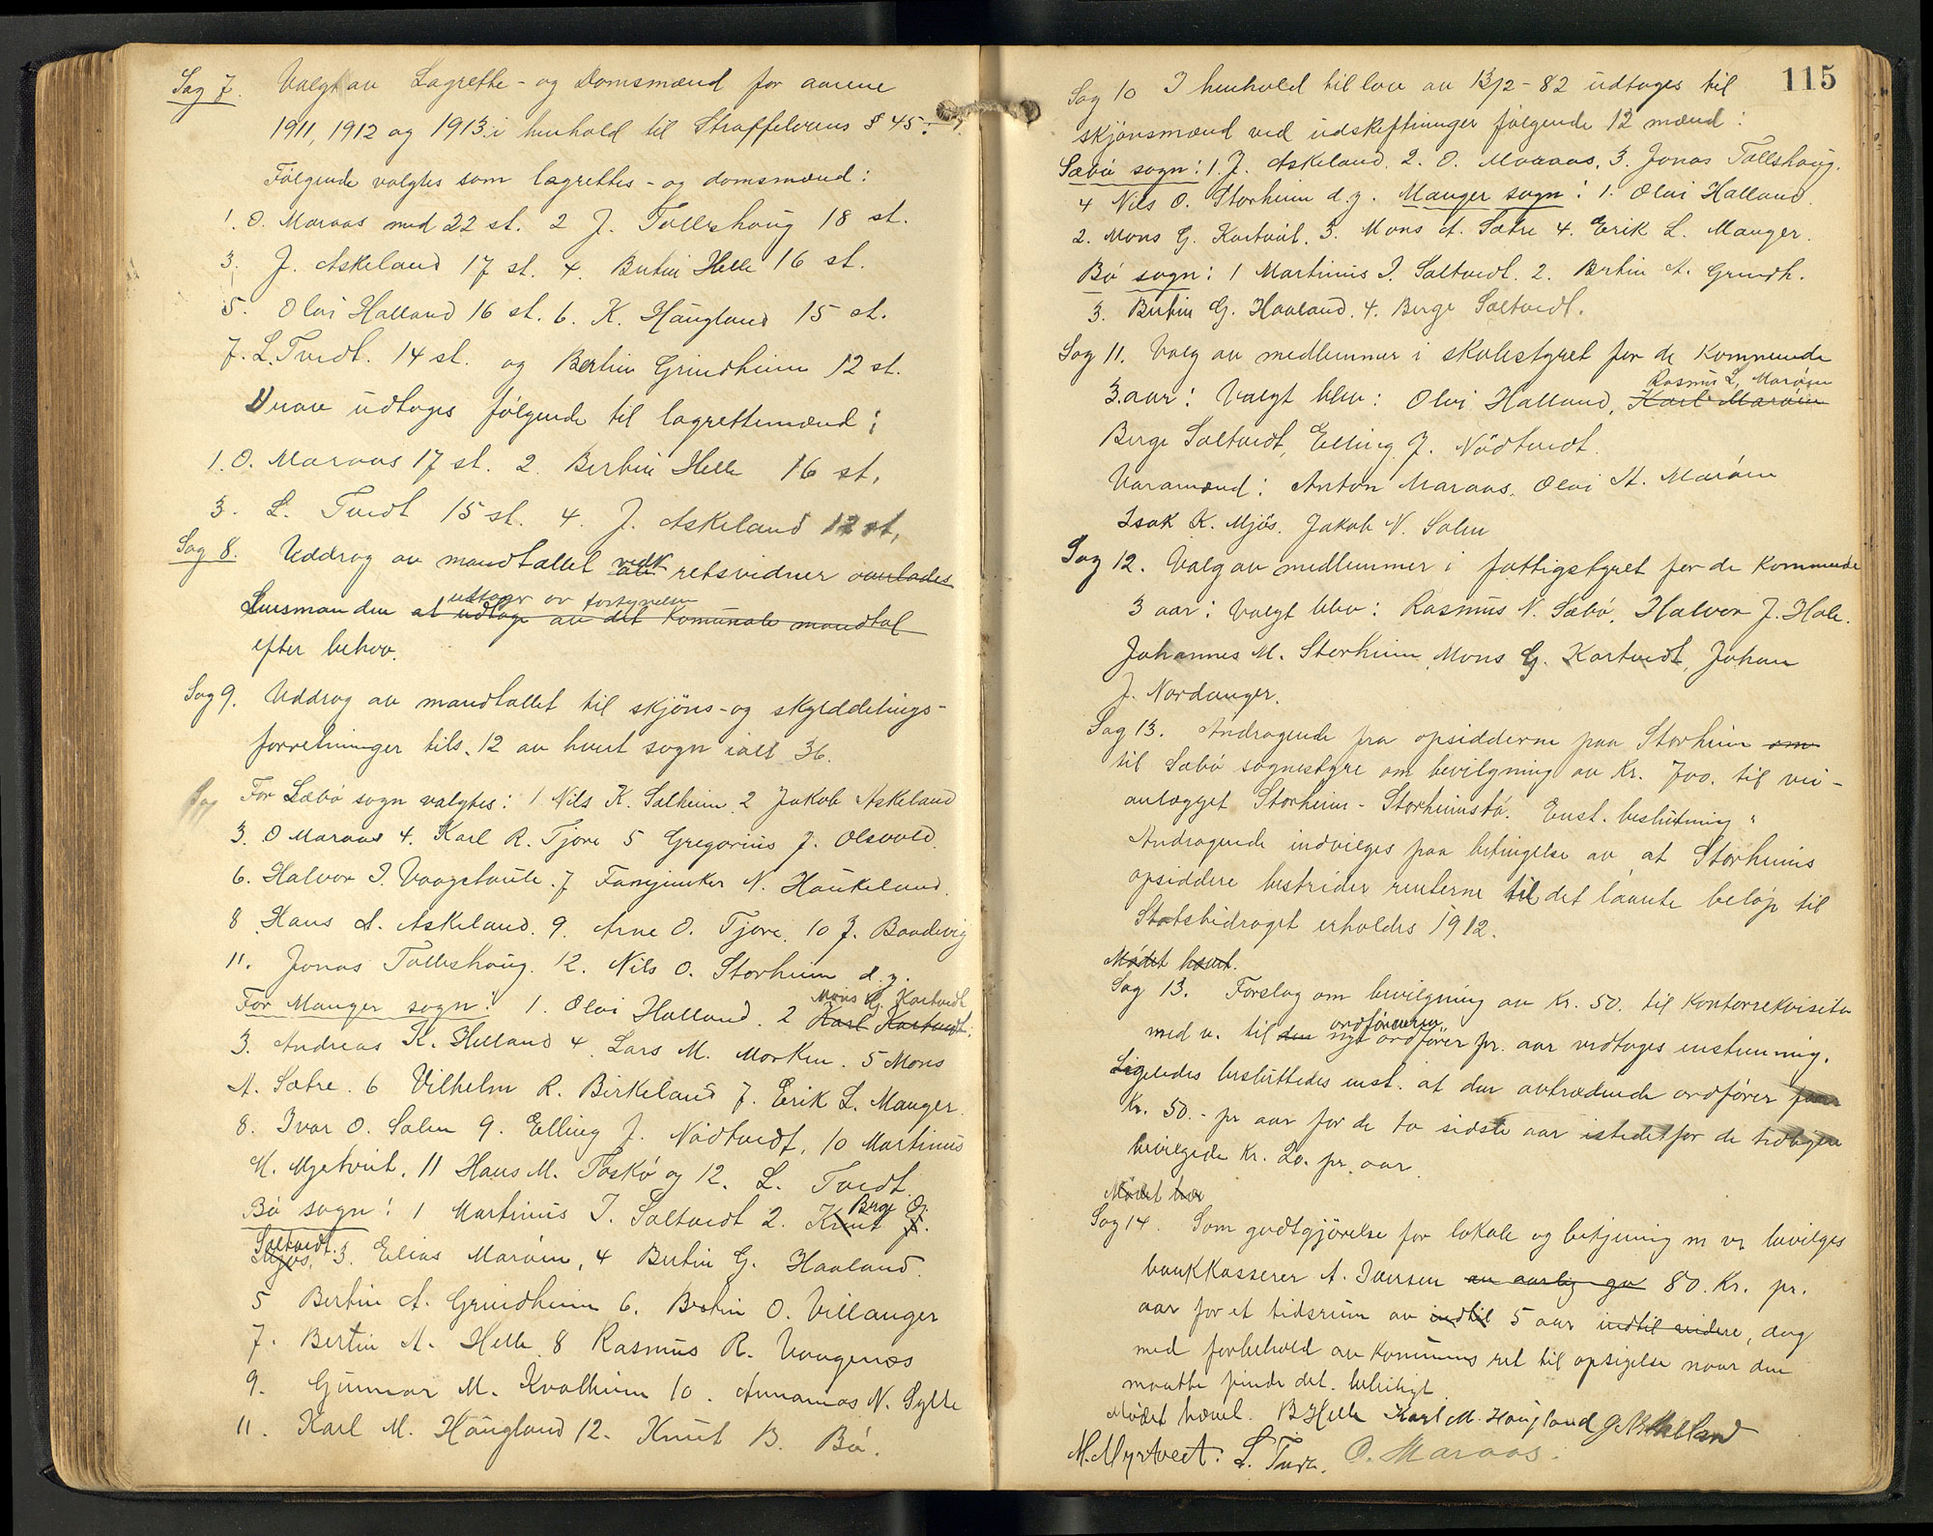 Sag 7. Valg av Lagrette- og Domsmænd for aarene
1911, 1912 og 1913 i henhold til Straffelovens § 45
Følgende valgtes som lagrettes- og domsmænd:
1. O. Maraas med 22 st. 2 J. Tolleshaug 18 st.
3. J. Askeland 17 st. 4. Bertin Helle 16 st.
5. Olai Halland 16 st. 6. K. Haugland 15 st.
7. L. Tvedt. 14 st. og Bertin Grindheim 12 st.
udtoges følgende til lagrettemænd:
1. O. Maraas 17 st. 2. Bertin Helle 16 st.
3. L. Tvedt 15 st. 4. J. Askeland 12 st.
Sag 8. Uddrag av mandtallet vedk retsvidner overlades
udtager av fortegnelsen
Lensmanden at udtage av det Komunale mandtal
efter behov.
Sag 9. Uddrag av mandtallet til skjøns- og skylddelings-
forretninger tils. 12 av hvert sogn ialt 36.
Sag For Sæbø sogn valgtes: 1 Nils K. Solheim 2 Jakob Askeland
3. O Maraas 4. Karl R. Tjore 5 Gregorius J. Olsvold.
6. Halvor I. Vaagstaule. 7 Fanejunker N. Haukeland.
8 Hans A. Askeland. 9. Arne O. Tjore. 10 J. Bondevig
11. Jonas Tolleshaug. 12. Nils O. Storheim d.y.
Mons G. Kartveit
For Manger sogn: 1. Olai Halland. 2 Karl Kartveit.
3. Andreas K. Helland 4. Lars M. Morken. 5 Mons
A. Sætre. 6 Vilhelm R. Birkeland 7. Erik L. Manger.
8. Ivar O. Solem 9. Elling J. Nødtvedt, 10 Martinus
M. Mjetveit. 11 Hans M. Toskø og 12. L. Tvedt.
Berge O.
Bø sogn: 1 Martinus I. Soltvedt 2. Knut J.
Soltvedt.
Mjøs, 3. Elias Marøen, 4 Bertin G. Haaland.
5 Bertin A. Grindheim 6. Bertin O. Villanger
7. Bertin A. Helle 8 Rasmus R. Vaagenæs
9. Gunnar M. Kvalheim 10. Annanias N. Sylte
11. Karl M. Haugland 12. Knut B. Bø.
115
Sag 10 I henhold til lov av 13/2-82 udtoges til
skjønsmænd ved udskiftninger følgende 12 mænd:
Sæbø sogn: 1. J. Askeland. 2. O. Maraas. 3. Jonas Tolleshaug.
4 Nils O. Storheim d.y. Manger sogn: 1. Olai Halland.
2. Mons G. Kartveit. 3. Mons A. Sætre 4. Erik L. Manger.
Bø sogn: 1 Martinus I. Soltvedt. 2. Bertin A. Grindh.
3. Bertin G. Haaland. 4. Berge Soltvedt.
Sag 11. Valg av medlemmer i skolestyret for de kommende
Rasmus L. Marøen
3 aar: Valgt blev: Olai Halland, Karl Marøen
Berge Soltvedt, Elling J. Nødtvedt.
Varamænd: Anton Maraas. Olai A. Marøen
Isak K. Mjøs. Jakob N. Solem
Sag 12. Valg av medlemmer i fattigstyret for de kommende
3 aar: Valgt blev: Rasmus N. Sæbø. Halvor J. Hole.
Johannes M. Storheim, Mons G. Kartvedt, Johan
J. Nordanger.
Sag 13. Andragende fra opsidderne paa Storheim om
til Sæbø sognestyre om bevilgning av Kr. 700. til vei-
anlægget Storheim - Storheimstø. Enst. beslutning:
Andragende indvilges paa betingelse av at Storheims
opsiddere bestrider renterne til det laante beløp til
Statsbidraget erholdes 1912.
Mødet hævet.
Sag 13. Forslag om bevilgning av Kr. 50. til Kontorrekvisita
ordføreren
med v. til den nye ordfører pr. aar vedtoges enstemmig.
Ligeledes besluttedes enst. at den avtrædende ordfører faar
Kr. 50.- pr aar for de to sidste aar istedetfor de tidligere
bevilgede Kr. 20. pr. aar.
Mødet hæv
Sag 14. Som godtgjørelse for lokale og betjening m v. bevilges
bankkasserer A. Iversen en aarlig ga 80. Kr. pr.
aar for et tidsrum av indtil 5 aar indtil videre, dog
med forbehold av Komunens ret til opsigelse naar den
maatte finde det. beleiligt.
Mødet hævet. B Helle Karl M. Haugland
M. Myrtveit. L. Tvedt. O. Maraas.